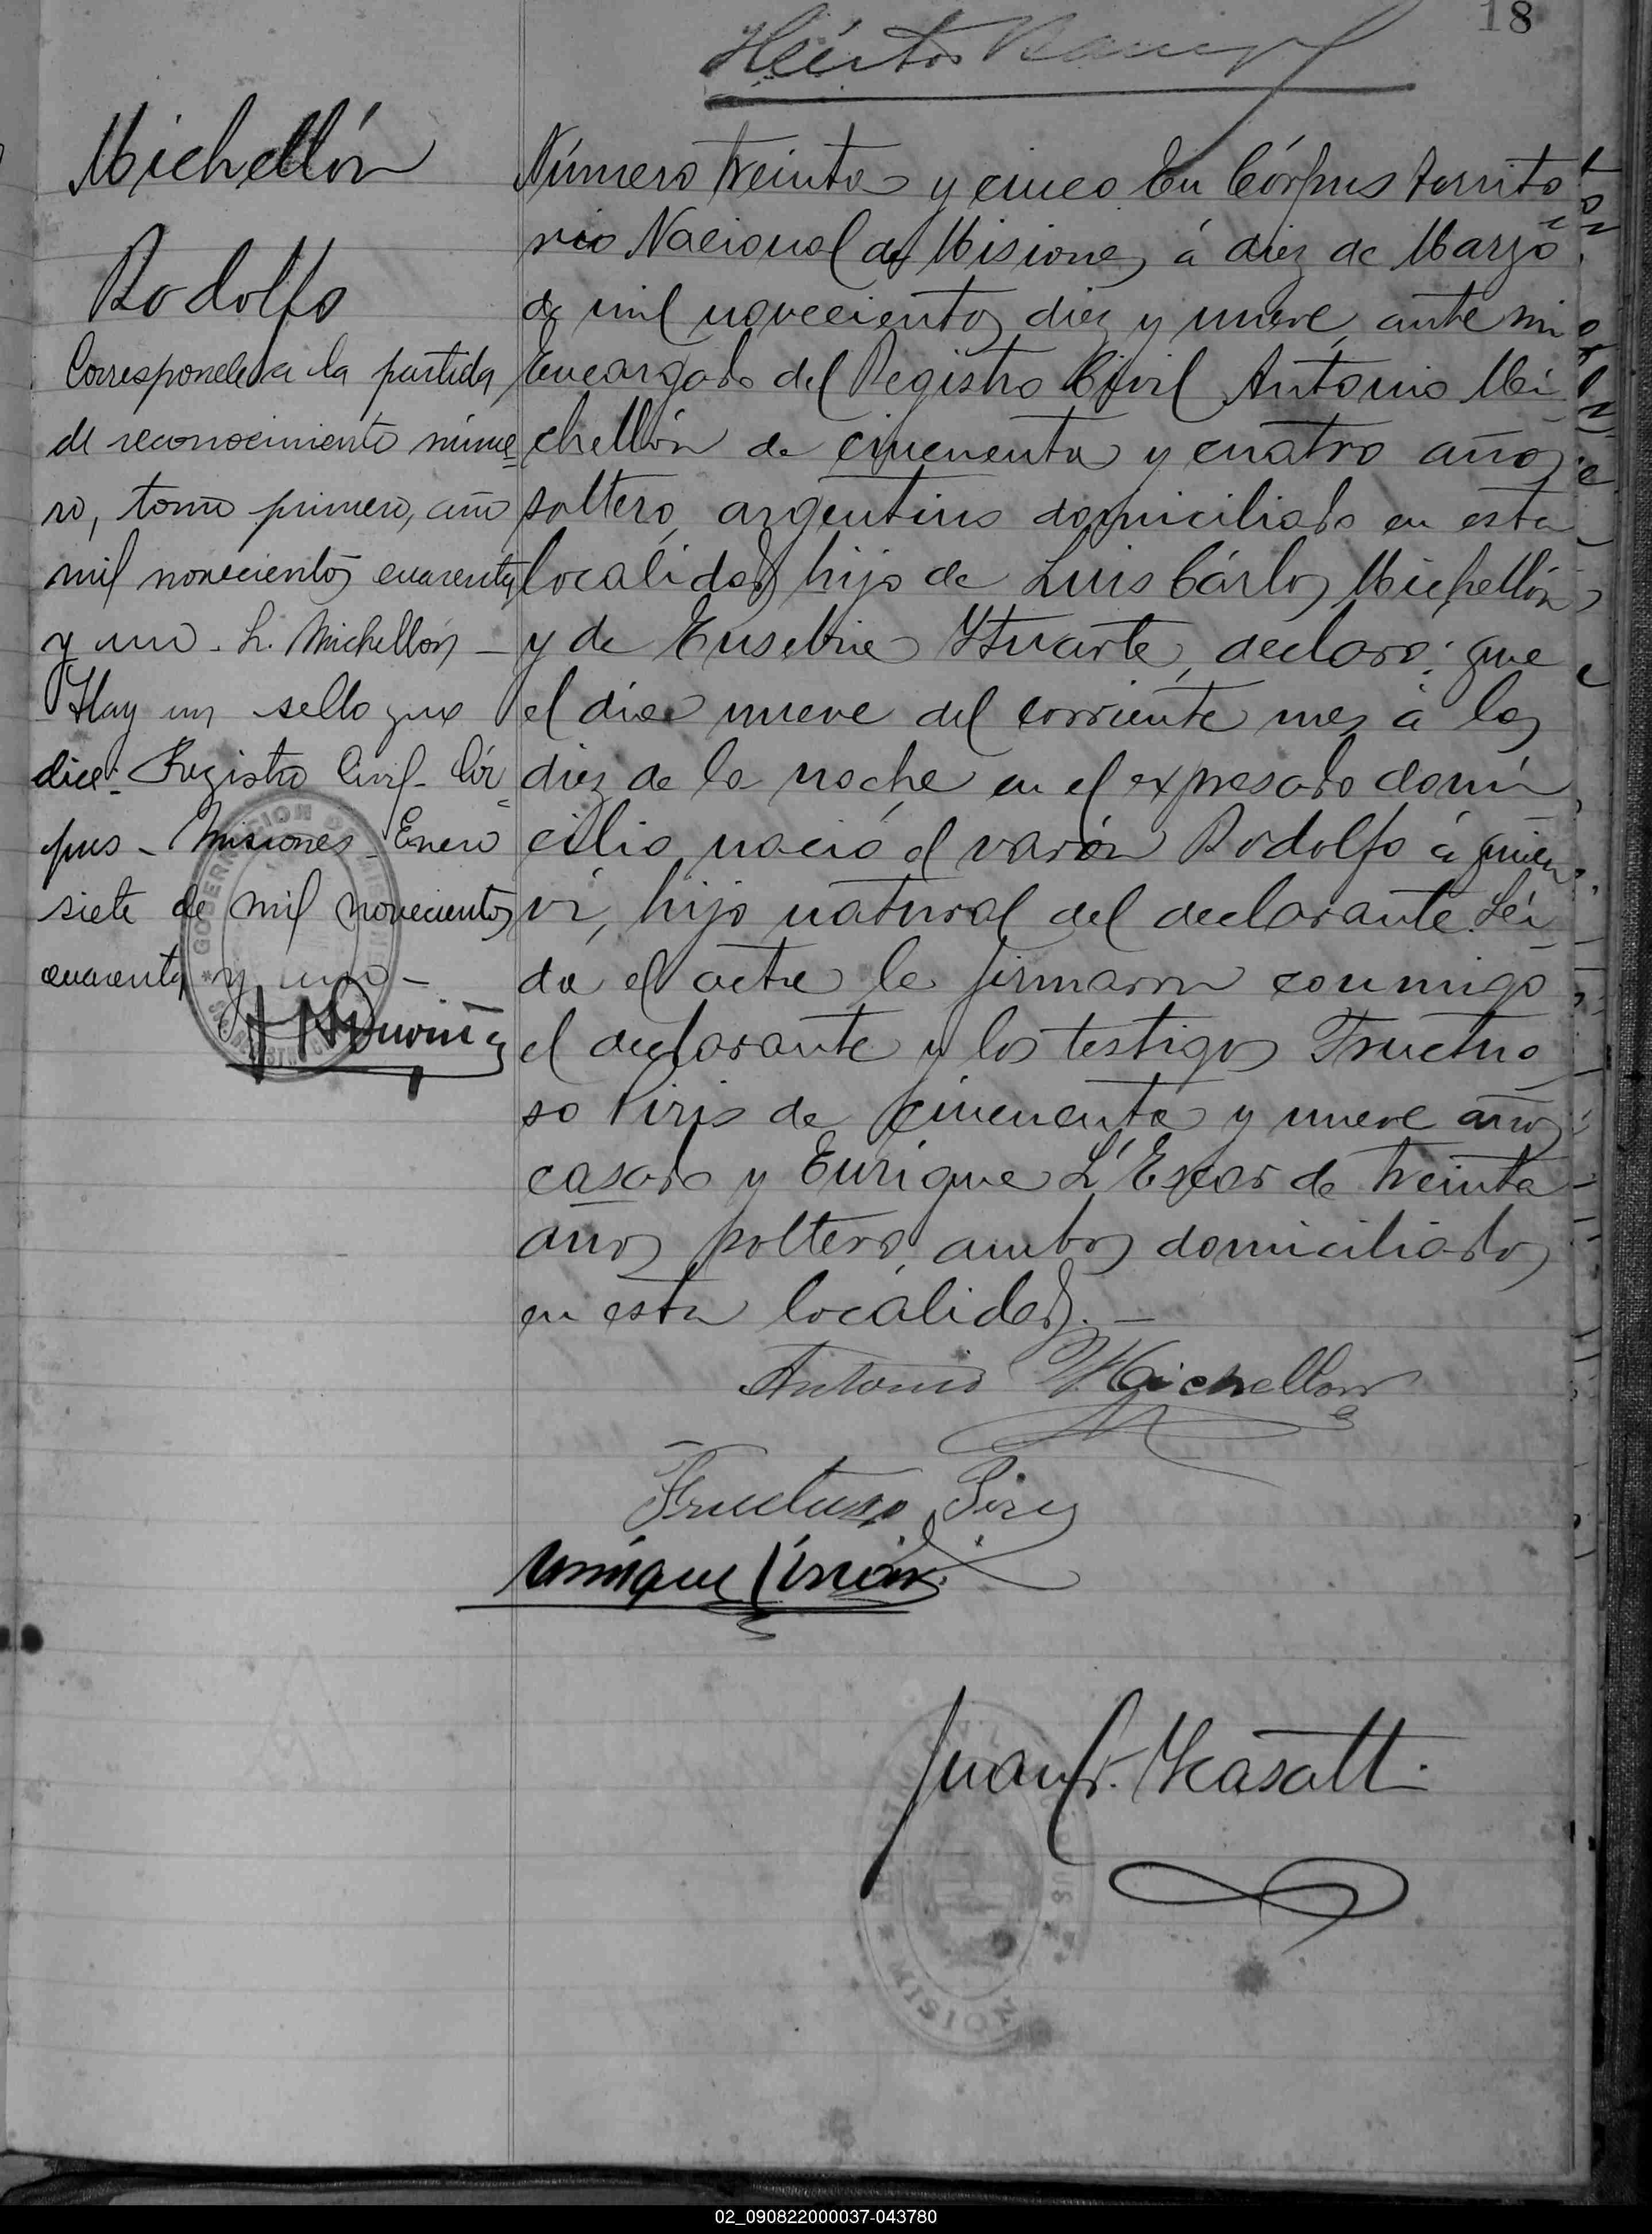 18
Michellón
Rodolfo
Corresponde a la partida
de reconocimiento núme=
ro, tomo primero, año
mil novecientos cuarenta
y uno. L. Michellón -
Hay un sello que
dice: Registro Civil - Cór=
pus - Misiones - Enero
siete de mil novecientos
cuarenta y uno -
Número treinta y cinco En Córpus territo
rio Nacional de Misiones, á diez de Marzo
de mil novecientos diez y nueve, ante mi
Encargado del Registro Civil Antonio Mi
chellón de cincuenta y cuatro años
soltero, argentino domiciliado en esta
localidad hijo de Luis Cárlos Michellón
y de Eusebia Ituarte, declaró: que
el día nueve del corriente mes á las
diez de la noche en el expresado domi
cilio nació el varón Rodolfo á quien
ví, hijo natural del declarante. Leí
da el acta la firmaron conmigo
el declarante y los testigos Fructuo
so Piris de cincuenta y nueve años
casado y Enrique L'Escar de treinta
años soltero, ambos domiciliados
en esta localidad. -
Antonio Michellon
Fructuoso Piris
Enrique
Juan
GOBERNACION
MISIONES
02_090822000037-043780